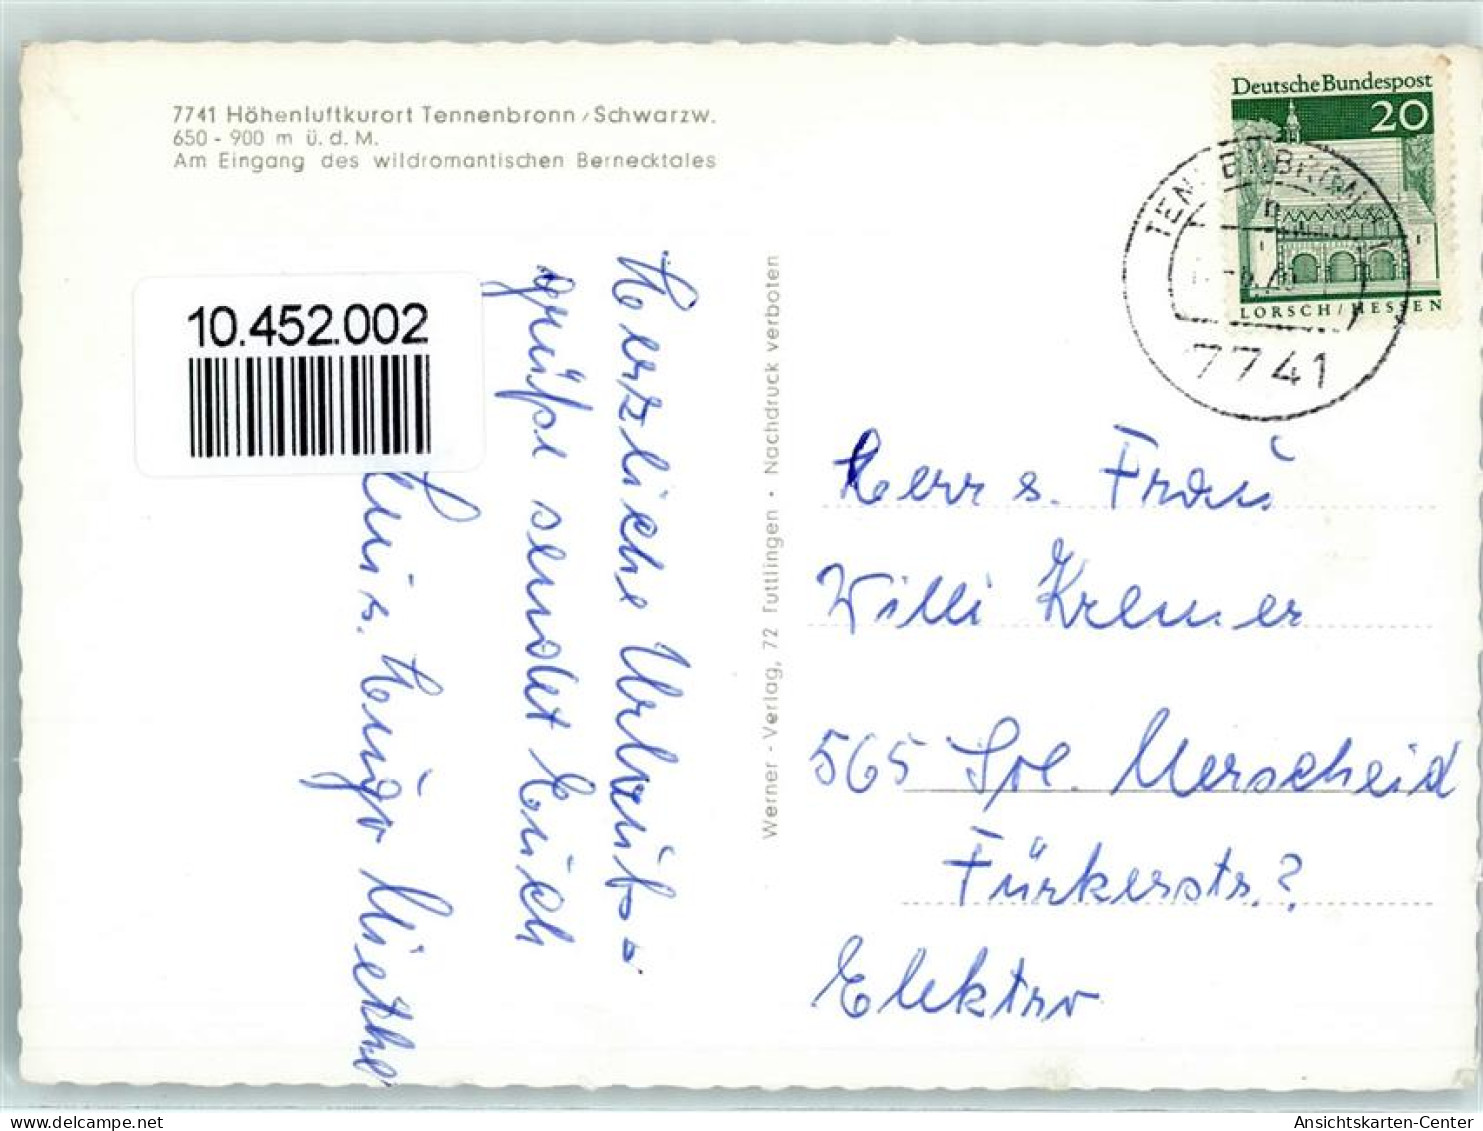 7741 Höhenluftkurort Tennenbronn/Schwarzw.
650 - 900 m ü. d. M.
Am Eingang des wildromantischen Bernecktales
Deutsche Bundespost
20
LORSCH/HESSEN
TENNENBRONN
7741
10.452.002
Herzliche Urlaubs=
grüße sendet Euch
Werner - Verlag, 72 Tuttlingen · Nachdruck verboten
Herr u. Frau
Willi Kremer
565 Sol. Merscheid
Fürkerstr.?
Elektro
10.452.002
Ansichtskarten-Center